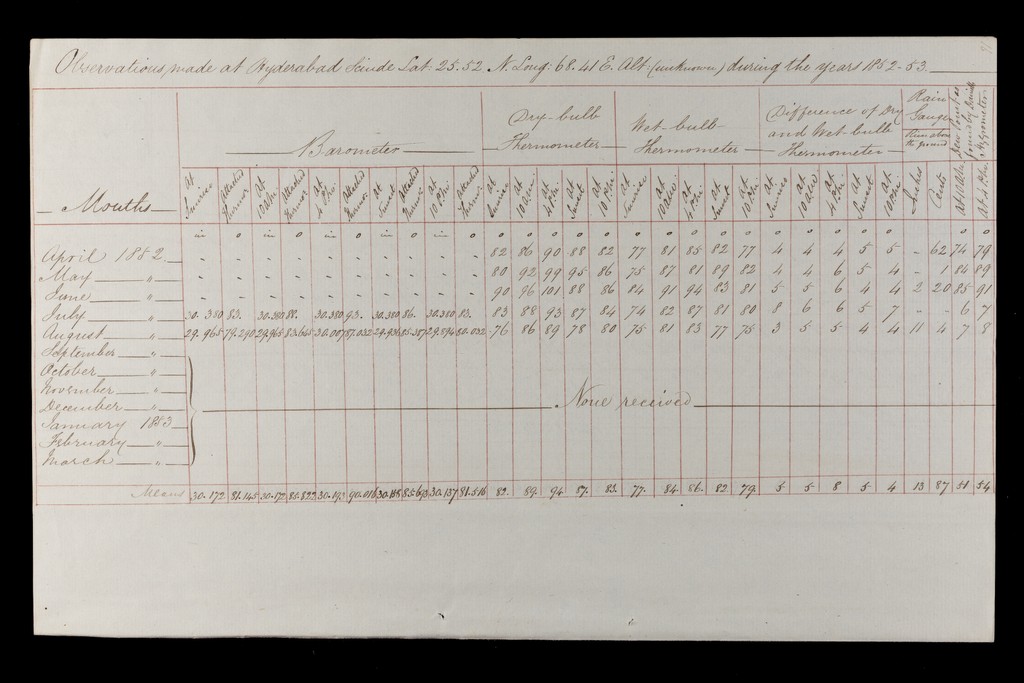 Observations, made at Hyderabad Scinde Lat: 25.52 N. Long: 68.41 E. Alt: (unknown) during the years 1852-53.
Months
Barometer
Dry-bulb Thermometer
Wet-bulb Thermometer
Difference of Dry and Wet-bulb Thermometer
Rain Gauge
the ground
At Sunrise Attached Thermor At 10 A.M. Attached Thermor At 4 P.M. Attached Thermor At Sunset Attached Thermor At 10 P.M. Attached Thermor At Sunrise At 10 A.M. At 4 P.M. At Sunset At 10 P.M. At Sunrise At 10 A.M. At 4 P.M. At Sunset At 10 P.M. At Sunrise At 10 A.M. At 4 P.M. At Sunset At 10 P.M. Inches Cents
in o in o in o in o in o o o o o o o o o o o o o o o o o o
April 1852 " " " " " " " " " " 82 86 90 88 82 77 81 85 82 77 4 4 4 5 5 " 62 74 79
May " " " " " " " " " " " 80 92 99 95 86 75 87 81 89 82 4 4 6 5 4 " 1 84 89
June " " " " " " " " " " " 90 96 101 88 86 84 91 94 83 81 5 5 6 4 4 2 20 85 91
July " 30.380 83. 30.380 88. 30.380 93. 30.380 86. 30.380 83. 83 88 93 87 84 74 82 87 81 80 8 6 6 5 7 " " 6 7
August " 29.965 79.290 29.965 83.645 30.007 87.032 29.936 85.387 29.894 80.032 76 86 89 78 80 75 81 83 77 75 3 5 5 4 4 11 4 7 8
September "
October "
November "
December " None received
January 1853
February "
March "
Means 30.172 81.145 30.172 85.822 30.193 90.016 30.158 85.693 30.137 81.516 82. 89. 94 87. 83. 77. 84. 86. 82. 79. 5 5 8 5 4 13 87 51 54